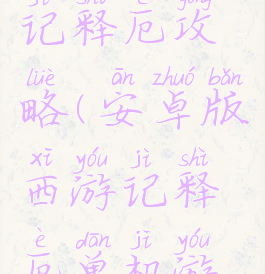 jì shì è gōng
记释厄攻
lüè ān zhuó bǎn
略(安卓版
xī yóu jì shì
西游记释
è dān jī yóu
厄单机游